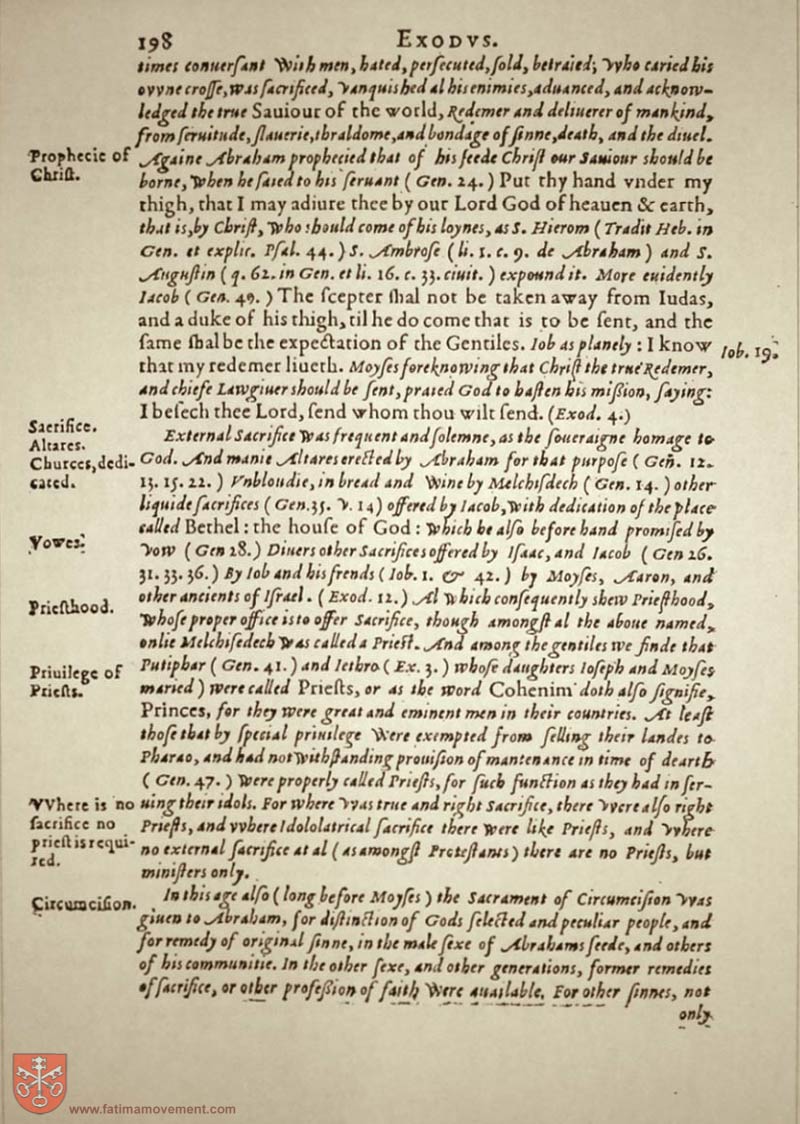 198
EXODVS.
times conuerſant with men, hated, perſecuted, ſold, betraied; vvho caried his
ovvne croſſe, was ſacrificed, vanquiſhed al his enimies, aduanced, and acknow-
ledged the true Sauiour of the world, Redemer and deliuerer of mankind,
from ſeruitude, ſlauerie, thraldome, and bondage of ſinne, death, and the diuel.
Prophecie of
Chriſt.
Againe Abraham prophecied that of his ſeede Chriſt our Sauiour should be
borne, when he ſaied to his ſeruant (Gen. 24.) Put thy hand vnder my
thigh, that I may adiure thee by our Lord God of heauen & earth,
that is, by Chriſt, who should come of his loynes, as S. Hierom (Tradit Heb. in
Gen. et explic. Pſal. 44.) S. Ambroſe (li. 1. c. 9. de Abraham) and S.
Auguſtin (q. 62. in Gen. et li. 16. c. 33. ciuit.) expound it. More euidently
Iacob (Gen. 49.) The ſcepter ſhal not be taken away from Iudas,
and a duke of his thigh, til he do come that is to be ſent, and the
ſame ſhal be the expectation of the Gentiles. Iob as planely: I know
Iob. 19.
that my redemer liueth. Moyſes foreknowing that Chriſt the true Redemer,
and chiefe Lawgiuer should be ſent, praied God to haſten his miſſion, ſaying:
I beſech thee Lord, ſend whom thou wilt ſend. (Exod. 4.)
Sacrifice.
Altares.
Churces, dedi-
cated.
External Sacrifice was frequent and ſolemne, as the ſoueraigne homage to
God. And manie Altares erected by Abraham for that purpoſe (Gen. 12.
13. 15. 22.) Vnbloudie, in bread and wine by Melchiſdech (Gen. 14.) other
liquide ſacrifices (Gen. 35. v. 14) offered by Iacob, with dedication of the place
called Bethel: the houſe of God: which he alſo before hand promiſed by
Vowes.
vow (Gen 28.) Diuers other Sacrifices offered by Iſaac, and Iacob (Gen 26.
31. 33. 36.) By Iob and his frends (Iob. 1. & 42.) by Moyſes, Aaron, and
other ancients of Iſrael. (Exod. 12.) Al which conſequently shew Prieſthood,
Prieſthood.
whoſe proper office is to offer Sacrifice, though amongſt al the aboue named,
onlie Melchiſedech was called a Prieſt. And among the gentiles we finde that
Priuilege of
Prieſts.
Putiphar (Gen. 41.) and Iethro (Ex. 3.) whoſe daughters Ioſeph and Moyſes
maried) were called Prieſts, or as the word Cohenim doth alſo ſignifie,
Princes, for they were great and eminent men in their countries. At leaſt
thoſe that by ſpecial priuilege were exempted from ſelling their landes to
Pharao, and had notwithſtanding prouiſion of mantenance in time of dearth
(Gen. 47.) were properly called Prieſts, for ſuch function as they had in ſer-
VVhere is no
ſacrifice no
prieſt is requi-
red.
uing their idols. For where vvas true and right Sacrifice, there vvere alſo right
Prieſts, and vvhere Idololatrical ſacrifice there were like Prieſts, and vvhere
no external ſacrifice at al (as amongſt Proteſtants) there are no Prieſts, but
miniſters only.
Circumciſion.
In this age alſo (long before Moyſes) the Sacrament of Circumciſion vvas
giuen to Abraham, for diſtinction of Gods ſelected and peculiar people, and
for remedy of original ſinne, in the male ſexe of Abrahams ſeede, and others
of his communitie. In the other ſexe, and other generations, former remedies
of ſacrifice, or other profeſſion of faith were auailable. For other ſinnes, not
only
www.fatimamovement.com